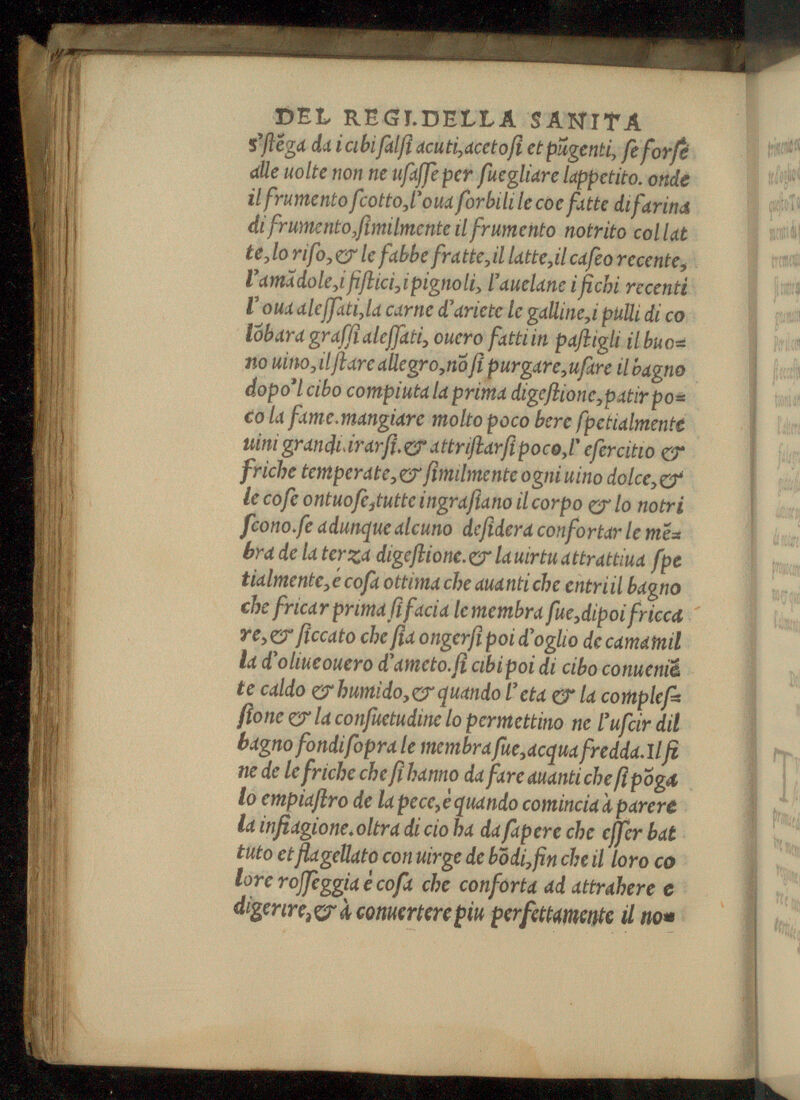 DEL REGI.DELLA SANITA
s'ſtẽga da i cibi ſalſi acuti,acetoſi et pũgenti, ſe forſe
alle uolte non ne uſaſſe per ſuegliare lappetito. onde
il frumento ſcotto,l'oua ſorbili le coe fatte di farina
di frumento,ſimilmente il frumento notrito col lat
te,lo riſo,& le fabbe fratte,il latte,il caſeo recente,
l'amãdole,i fiſtici,i pignoli, l'auelane i fichi recenti
l'oua aleſſati,la carne d'ariete le galline,i pulli di co
lõbara graſſi aleſſati, ouero fatti in paſtigli il buo=
no uino,il ſtare allegro,nõ ſi purgare,uſare il bagno
dopo'l cibo compiuta la prima digeſtione,patir po=
co la fame.mangiare molto poco bere ſpetialmente
uini grandi.irarſi.& attriſtarſi poco,l'eſercitio &
friche temperate,& ſimilmente ogni uino dolce,&
le coſe ontuoſe,tutte ingraſiano il corpo & lo notri
ſcono.ſe adunque alcuno deſidera confortar le mẽ=
bra de la terza digeſtione.& la uirtu attrattiua ſpe
tialmente,é coſa ottima che auanti che entri il bagno
che fricar prima ſi facia le membra ſue,dipoi fricca
re,& ſiccato che ſia ongerſi poi d'oglio de camamil
la d'oliue ouero d'ameto.ſi cibi poi di cibo conueniẽ
te caldo & humido,& quando l'eta & la compleſ=
ſione & la conſuetudine lo permettino ne l'uſcir dil
bagno fondi ſopra le membra ſue,acqua fredda.Il fi
ne de le friche che ſi hanno da fare auanti che ſi põga
lo empiaſtro de la pece,é quando comincia à parere
la infiagione.oltra di cio ha da ſapere che eſſer bat
tuto et flagellato con uirge de bõdi,fin che il loro co
lore roſſeggia é coſa che conforta ad attrahere e
digerire,& à conuertere piu perfettamente il no=